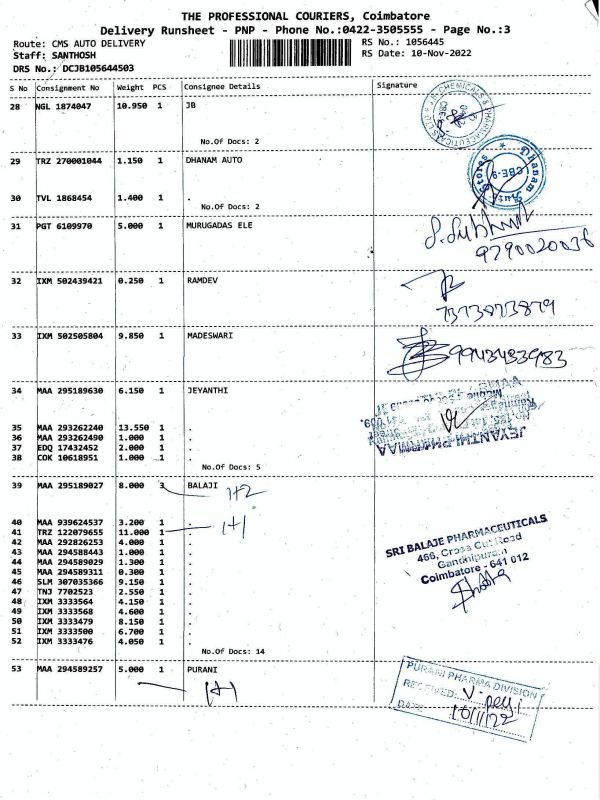 THE PROFESSIONAL COURIERS, Coimbatore
Delivery Runsheet - PNP - Phone No.:0422-3505555 - Page No.:3
Route: CMS AUTO DELIVERY
RS No.: 1056445
Staff: SANTHOSH
RS Date: 10-Nov-2022
DRS No.: DCJB105644503
S No Consignment No Weight PCS Consignee Details Signature
28 NGL 1874047 10.950 1 JB
No.Of Docs: 2
29 TRZ 270001044 1.150 1 DHANAM AUTO
Dhanam Auto Stores
CBE-9
30 TVL 1868454 1.400 1 .
No.Of Docs: 2
31 PGT 6109970 5.000 1 MURUGADAS ELE
9790020036
32 IXM 502439421 0.250 1 RAMDEV
7373073879
33 IXM 502505804 9.850 1 MADESWARI
9943483983
34 MAA 295189630 6.150 1 JEYANTHI
JEYANTHI PHARMAA
35 MAA 293262240 13.550 1 .
36 MAA 293262490 1.000 1 .
37 EDQ 17432452 2.000 1 .
38 COK 10618951 1.000 1 .
No.Of Docs: 5
39 MAA 295189027 8.000 3 BALAJI
1+2
40 MAA 939624537 3.200 1 .
41 TRZ 122079655 11.000 1 .
1+1
42 MAA 292826253 4.000 1 .
43 MAA 294588443 1.000 1 .
44 MAA 294589029 1.300 1 .
45 MAA 294589311 0.300 1 .
46 SLM 307035366 9.150 1 .
47 TNJ 7702523 2.550 1 .
48 IXM 3333564 4.150 1 .
49 IXM 3333568 4.600 1 .
50 IXM 3333479 8.150 1 .
51 IXM 3333500 6.700 1 .
52 IXM 3333476 4.050 1 .
No.Of Docs: 14
SRI BALAJE PHARMACEUTICALS
466, Cross Cut Road
Gandhipuram
Coimbatore - 641 012
53 MAA 294589257 5.000 1 PURANI
1+1
PURANI PHARMA DIVISION
RECEIVED
DATE 10/11/22